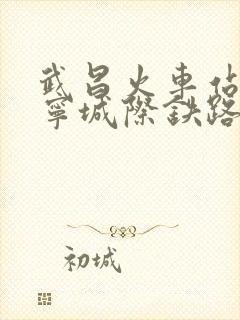 武昌火車佔
寧城際鉄路
初城